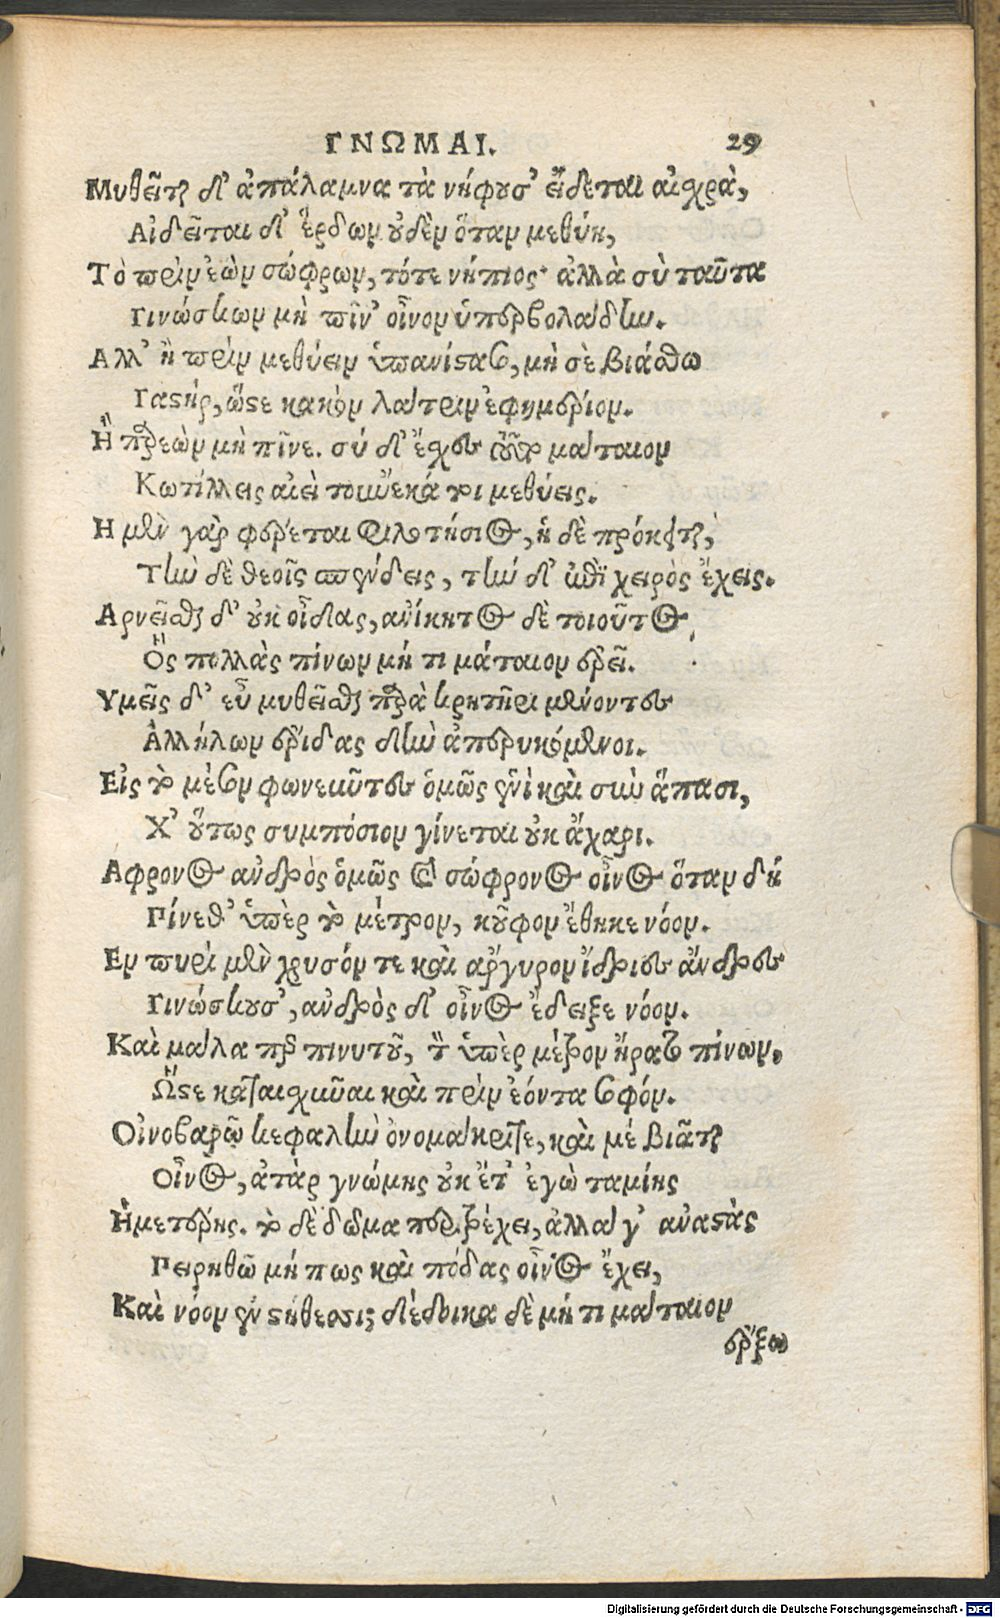 ΓΝΩΜΑΙ. 29
Μυθεῖται δ' ἀπάλαμνα τὰ νήφουσ' εἴδεται αἰσχρὰ,
Αἰδεῖται δ' ἕρδων οὐδὲν ὅταν μεθύῃ,
Τὸ πρὶν ἐὼν σώφρων, τότε νήπιος· ἀλλὰ σὺ ταῦτα
Γινώσκων μὴ πῖν' οἶνον ὑπερβολάδην.
Αλλ' ἢ πρὶν μεθύειν ὑπανίστασο, μὴ σὲ βιάσθω
Γαστήρ, ὥστε κακὸν λάτριν ἐφημέριον.
Ἢ παρεὼν μὴ πῖνε. σύ δ' ἔγχεε τοῦτο μάταιον
Κωτίλλεις αἰεὶ τοὔνεκά τοι μεθύεις.
Η μὲν γὰρ φέρεται φιλοτήσιος, ἡ δὲ πρόκειται,
Τὴν δὲ θεοῖς σπένδεις, τὴν δ' ἐπὶ χειρὸς ἔχεις.
Αρνεῖσθαι δ' οὐκ οἶδας, ἀνίκητος δὲ τοιοῦτος,
Ὃς πολλὰς πίνων μή τι μάταιον ἐρεῖ.
Υμεῖς δ' εὖ μυθεῖσθαι παρὰ κρητῆρι μένοντες
Ἀλλήλων ἔριδας δὴν ἀπερυκόμενοι.
Εἰς τὸ μέσον φωνεῦντες ὁμῶς ἑνὶ καὶ σὺν ἅπασι,
Χ' οὕτως συμπόσιον γίνεται οὐκ ἄχαρι.
Αφρονος ἀνδρὸς ὁμῶς καὶ σώφρονος οἶνος ὅταν δή
Πίνεθ' ὑπὲρ τὸ μέτρον, κοῦφον ἔθηκε νόον.
Εν πυρὶ μὲν χρυσόν τε καὶ ἄργυρον ἴδριες ἄνδρες
Γινώσκουσ', ἀνδρὸς δ' οἶνος ἔδειξε νόον.
Καὶ μάλα περ πινυτοῦ, τὸ ὑπὲρ μέτρον ἤρατο πίνων,
Ὥστε καταισχῦναι καὶ πρὶν ἐόντα σοφόν.
Οἰνοβαρῶ κεφαλὴν ὀνομάκριτε, καὶ μὲ βιᾶται
Οἶνος, ἀτὰρ γνώμης οὐκ ἔτ' ἐγὼ ταμίης
Ἡμετέρης. τὸ δὲ δῶμα περιτρέχει, ἀλλά γ' ἀναστὰς
Πειρηθῶ μή πως καὶ πόδας οἶνος ἔχει,
Καὶ νόον ἐν στήθεσσι; δέδοικα δὲ μή τι μάταιον
ἔρξω